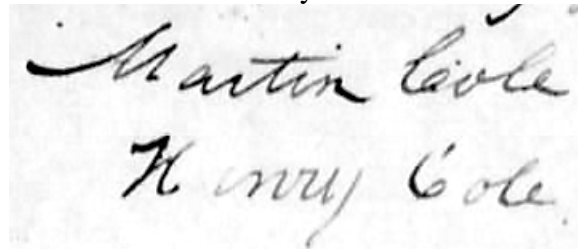 Martin Cole
Henry Cole